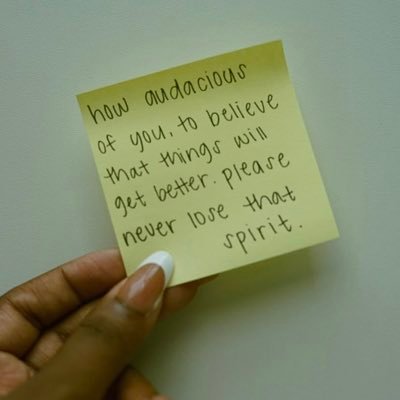 how audacious
of you, to believe
that things will
get better. please
never lose that
spirit.